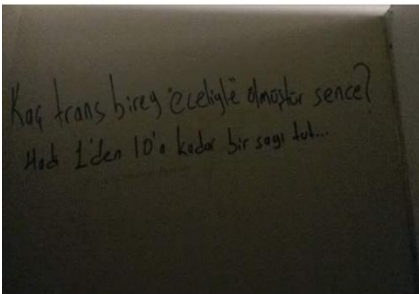 Kaç trans birey "eceliyle" ölmüştür sence?
Hadi 1'den 10'a kadar bir sayı tut...